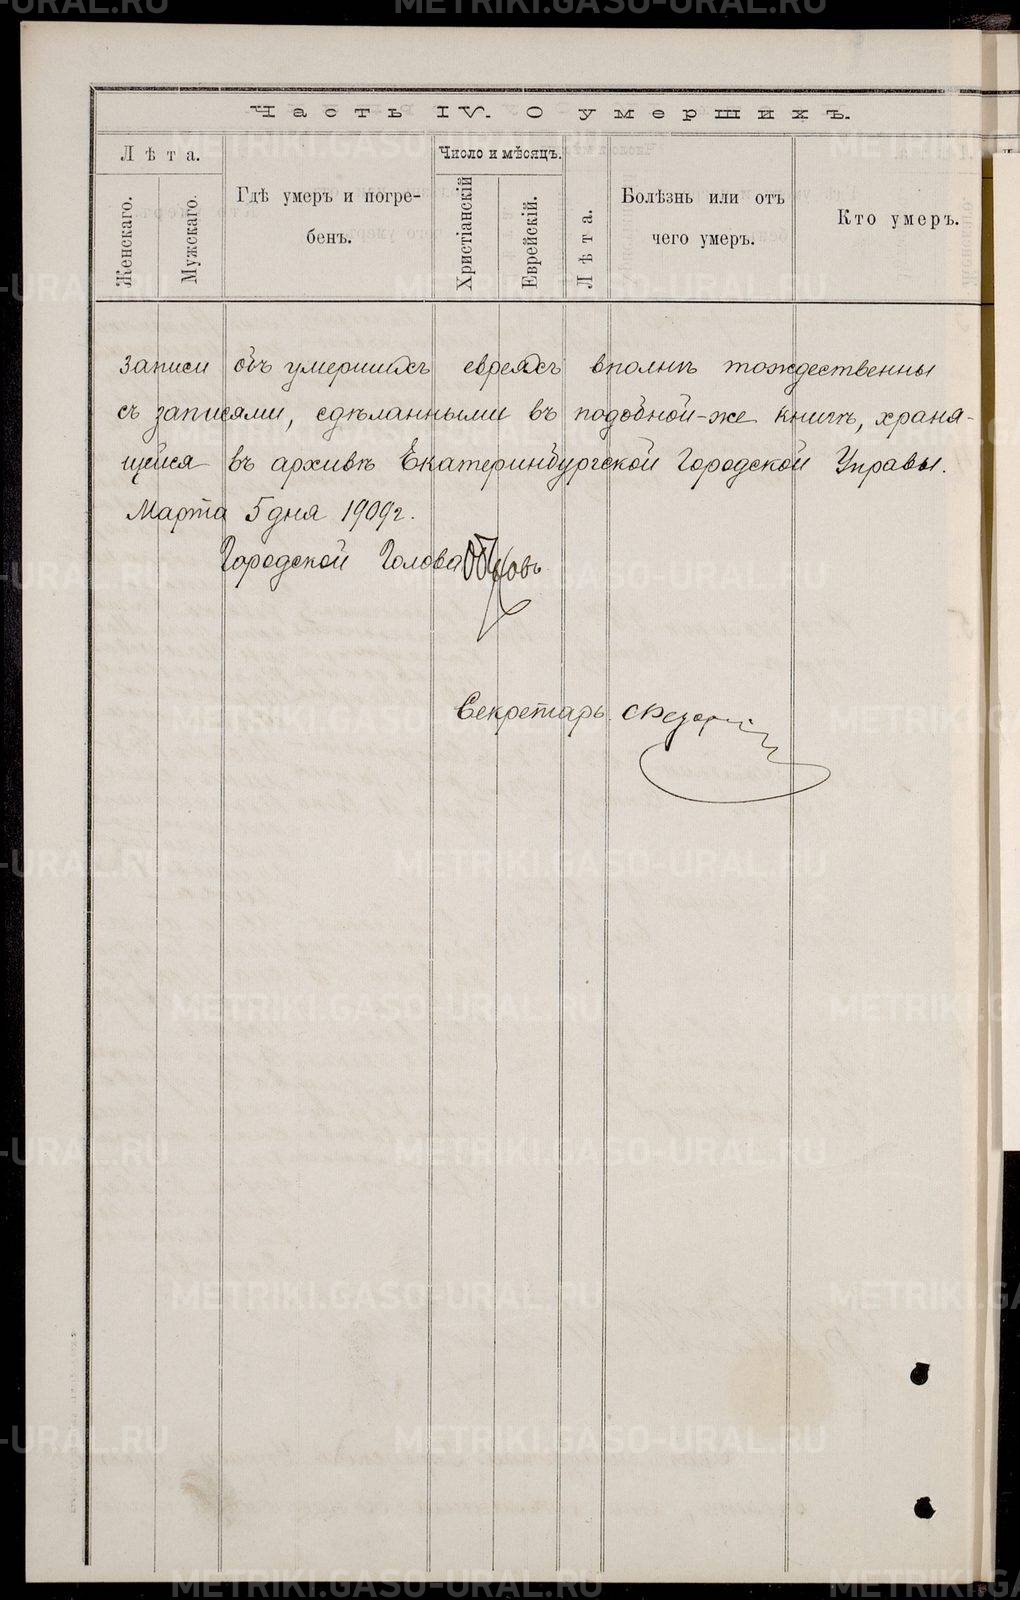 Часть IV. О умершихъ.
Лѣта.
Женскаго.
Мужскаго.
Гдѣ умеръ и погре-
бенъ.
Число и мѣсяцъ.
Христіанскій
Еврейскій.
Лѣта.
Болѣзнь или отъ
чего умеръ.
Кто умеръ.
Записи объ умершихъ евреяхъ вполнѣ тождественны
съ записями, сдѣланными въ подобной-же книгѣ, храня-
щейся въ архивѣ Екатеринбургской Городской Управы.
Марта 5 дня 1909 г.
Городской Голова Обуховъ
Секретарь
METRIKI.GASO-URAL.RU